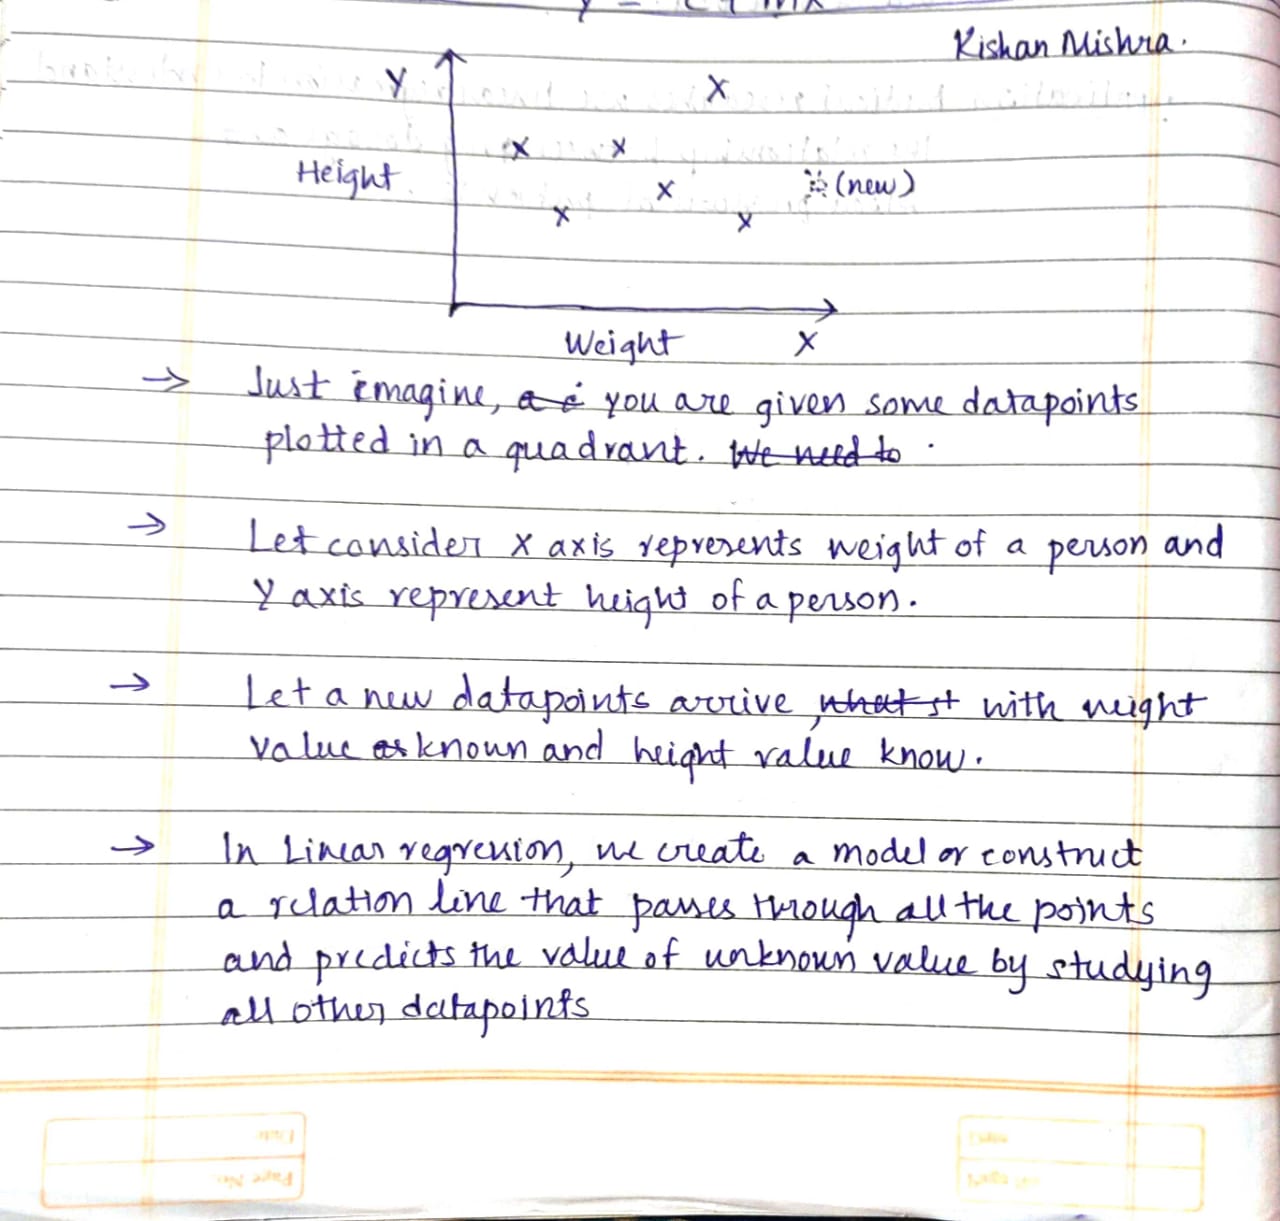 Kishan Mishra.
Y
X
X X
Height
X
(new)
X X
Weight X
→ Just imagine, you are given some datapoints
plotted in a quadrant.
→ Let consider X axis represents weight of a person and
Y axis represent height of a person.
→ Let a new datapoints arrive, with weight
value known and height value know.
→ In Linear regression, we create a model or construct
a relation line that passes through all the points
and predicts the value of unknown value by studying
all other datapoints